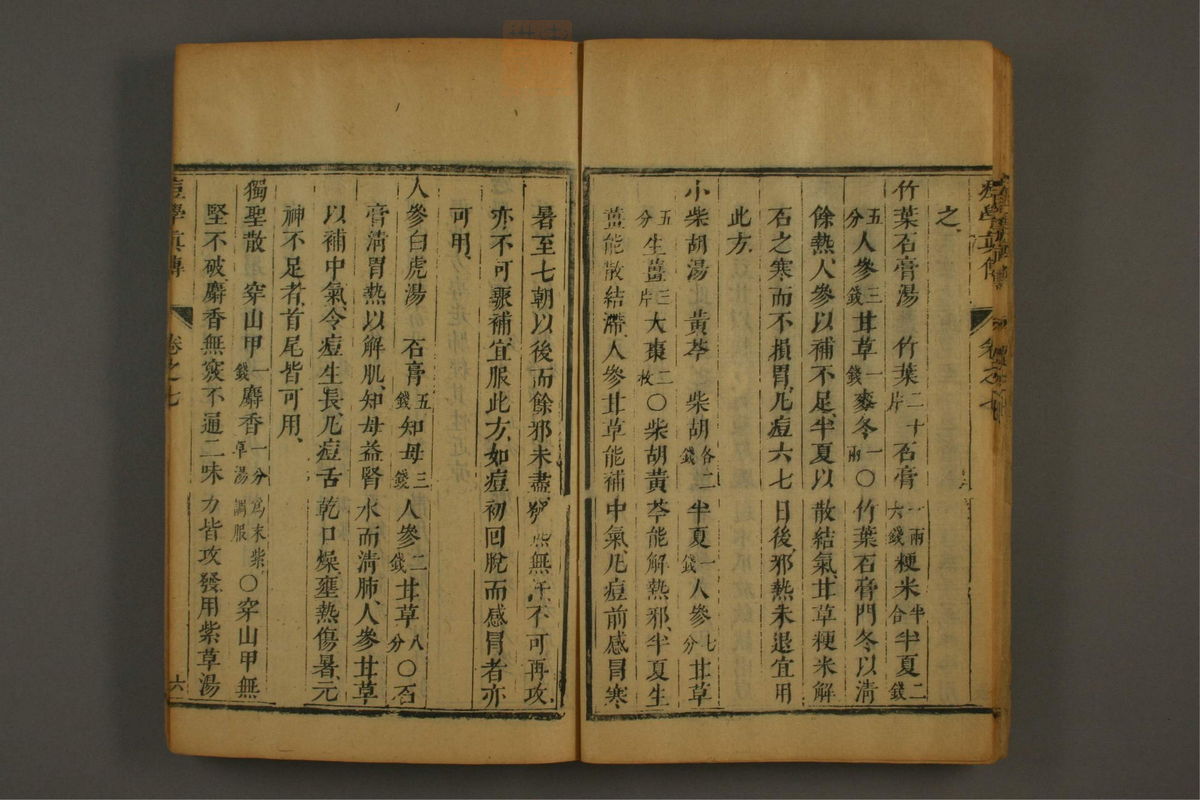 之
竹葉石膏湯 竹葉二十片 石膏一兩六錢 粳米半合 半夏二錢
五分 人參三錢 甘草一錢 麥冬一兩 ○竹葉石膏門冬以清
餘熱人參以補不足半夏以散結氣甘草粳米解
石之寒而不損胃凡痘六七日後邪熱未退宜用
此方
小柴胡湯 黃芩 柴胡各二錢 半夏一錢 人參七分 甘草
五分 生薑三片 大棗二枚 ○柴胡黃芩能解熱邪半夏生
薑能散結滯人參甘草能補中氣凡痘前感冒寒
暑至七朝以後而餘邪未盡 無汗不可再攻
亦不可驟補宜服此方如痘初回脫而感冒者亦
可用
人參白虎湯 石膏五錢 知母三錢 人參二錢 甘草八分 ○石
膏清胃熱以解肌知母益腎水而清肺人參甘草
以補中氣令痘生長凡痘舌乾口燥壅熱傷暑元
神不足者首尾皆可用
獨聖散 穿山甲一錢 麝香一分 為末紫草湯調服 ○穿山甲無
堅不破麝香無竅不通二味力皆攻發用紫草湯
痘學真傳 卷之七 六